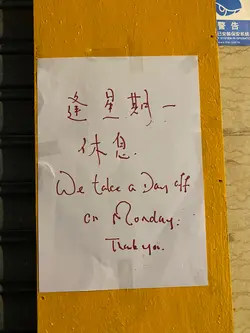 逢星期一
休息.
We take a Day off
on Monday.
Thank you.
警告